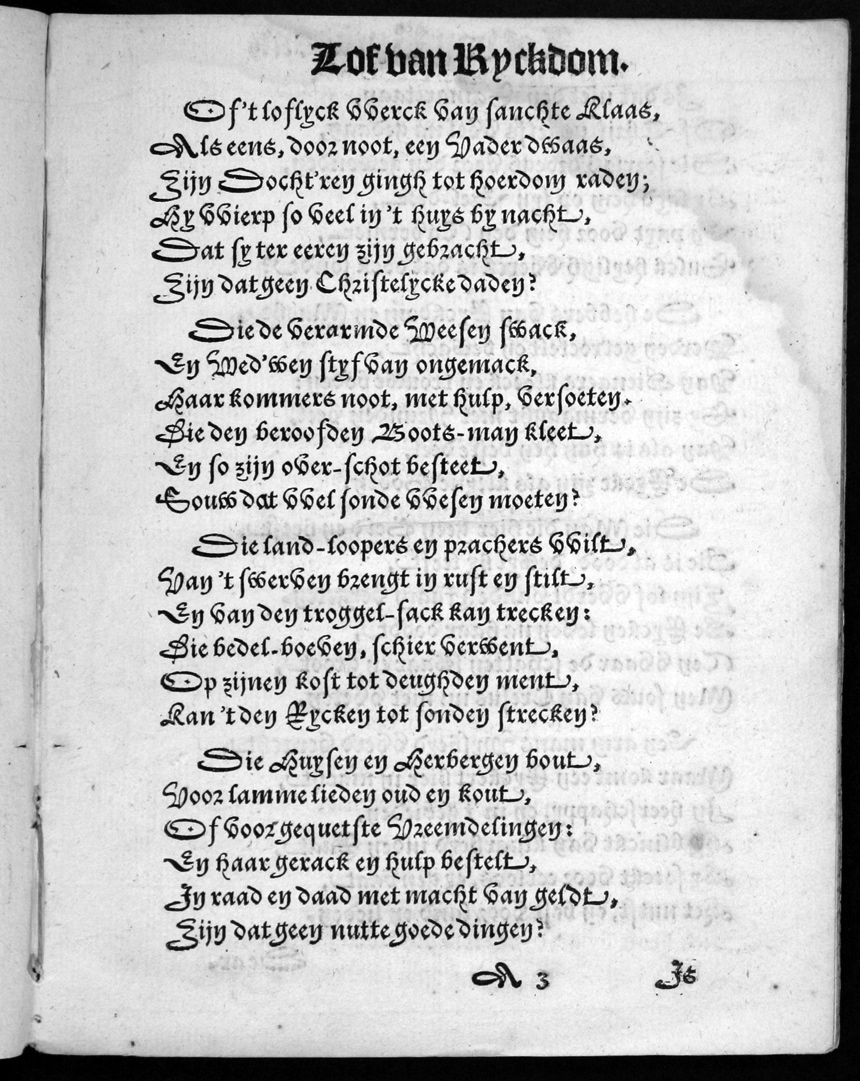 Lof van Ryckdom.
Of 't loflyck vverck van sanchte Klaas,
Als eens, door noot, een Vader dwaas,
Zijn Docht'ren gingh tot hoerdom raden;
Hy vvierp so veel in 't huys by nacht,
Dat sy ter eeren zijn gebracht,
Zijn dat geen Christelycke daden?
Die de verarmde Weesen swack,
En Wed'wen styf van ongemack,
Haar kommers noot, met hulp, versoeten.
Die den beroofden Boots-man kleet,
En so zijn over-schot besteet,
Souw dat vvel sonde vvesen moeten?
Die land-loopers en prachers vvilt,
Van 't swerven brengt in rust en stilt,
En van den troggel-sack kan trecken:
Die bedel-boeven, schier verwent,
Op zijnen kost tot deughden ment,
Kan 't den Rycken tot sonden strecken?
Die Huysen en Herbergen bout,
Voor lamme lieden oud en kout,
Of voor gequetste Vreemdelingen:
En haar gerack en hulp bestelt,
In raad en daad met macht van geldt,
Zijn dat geen nutte goede dingen?
A 3 Is